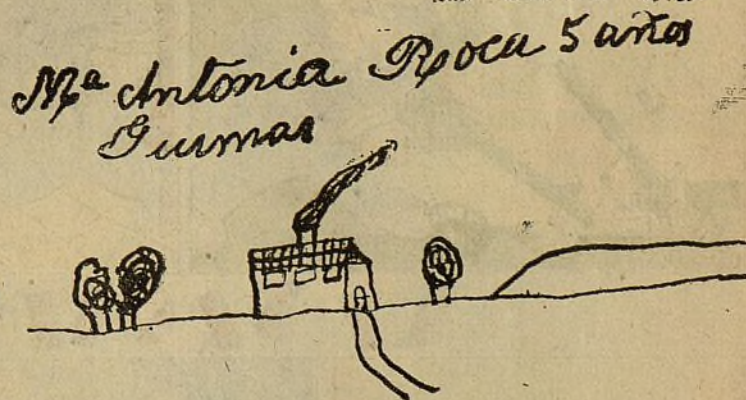 Mª Antonia Roca 5 años
Guimar